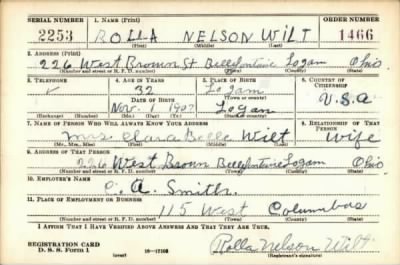 SERIAL NUMBER 1. NAME (Print) ORDER NUMBER
2253 ROLLA NELSON WILT 1466
(First) (Middle) (Last)
2. ADDRESS (Print)
226 West Brown St Bellefontaine Logan Ohio
(Number and street or R. F. D. number) (Town) (County) (State)
3. TELEPHONE 4. AGE IN YEARS 5. PLACE OF BIRTH 6. COUNTRY OF CITIZENSHIP
32 Logan
(Town or county)
DATE OF BIRTH U.S.A.
Nov. 1 1907 Logan
(Exchange) (Number) (Mo.) (Day) (Yr.) (State or country)
7. NAME OF PERSON WHO WILL ALWAYS KNOW YOUR ADDRESS 8. RELATIONSHIP OF THAT PERSON
Mrs. Clara Belle Wilt wife
(Mr., Mrs., Miss) (First) (Middle) (Last)
9. ADDRESS OF THAT PERSON
226 West Brown Bellefontaine Logan Ohio
(Number and street or R. F. D. number) (Town) (County) (State)
10. EMPLOYER'S NAME
C. A. Smith.
11. PLACE OF EMPLOYMENT OR BUSINESS
115 West Columbus
(Number and street or R. F. D. number) (Town) (County) (State)
I AFFIRM THAT I HAVE VERIFIED ABOVE ANSWERS AND THAT THEY ARE TRUE.
REGISTRATION CARD
D. S. S. Form 1 (over) Rolla Nelson Wilt
(Registrant's signature)